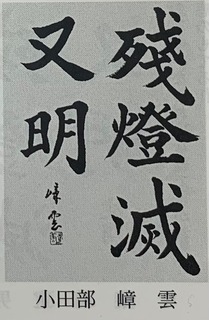 殘燈滅
又明
嶂雲
小田部 嶂 雲